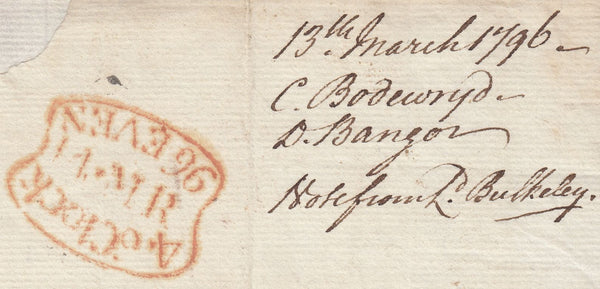 13th March 1796
C. Bodewryd
D. Bangor
Note from Ld. Bulkeley.
4 o'Clock
17 · MR
96 EVEN